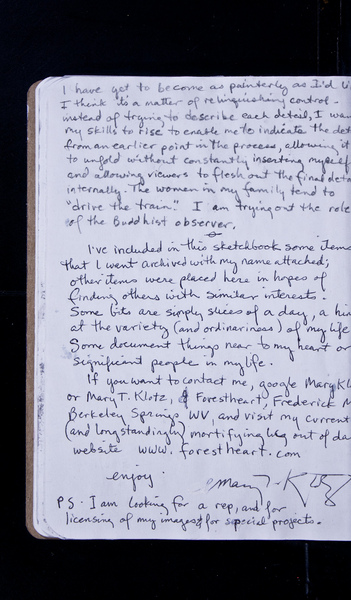 I have yet to become as painterly as I'd li
I think it's a matter of relinquishing control -
instead of trying to describe each detail, I wan
my skills to rise to enable me to indicate the det
from an earlier point in the process, allowing it
to unfold without constantly inserting myself
and allowing viewers to flesh out the final deta
internally. The women in my family tend to
"drive the train." I am trying out the role
of the Buddhist observer.
I've included in this sketchbook some items
that I want archived with my name attached;
other items were placed here in hopes of
finding others with similar interests.
Some bits are simply slices of a day, a hin
at the variety (and ordinariness) of my life
Some document things near to my heart or
significant people in my life.
If you want to contact me, google Mary Kl
or Mary T. Klotz, Forestheart, Frederick M
Berkeley Springs WV, and visit my current
(and longstandingly) mortifyingly out of da
website www.forestheart.com
enjoy.
Mary T. Klotz
PS. I am looking for a rep, and for
licensing of my images for special projects.